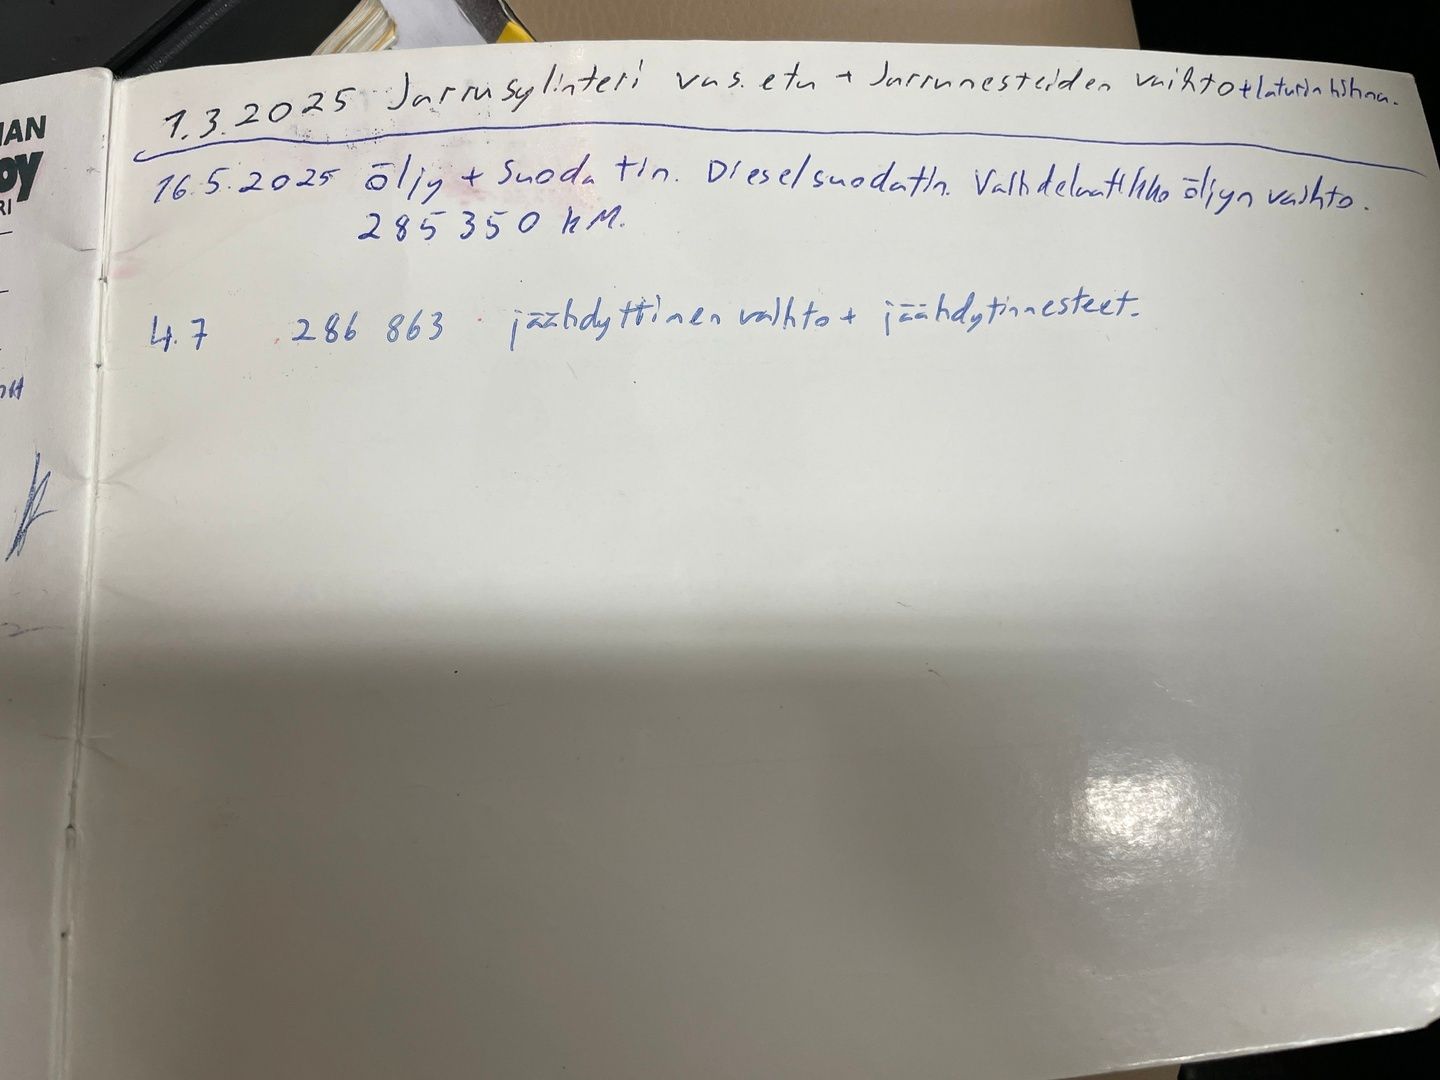 IAN
oy
RI
1.3.2025 Jarrusylinteri vas. etu + Jarrunesteiden vaihto + laturin hihna.
16.5.2025 öljy + Suodatin. Dieselsuodatin. Vaihdelaatikko öljyn vaihto.
285350 kM.
4.7 286 863 jäähdyttinen vaihto + jäähdytinnesteet.